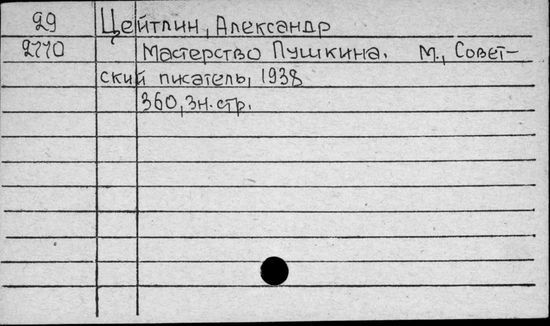 29 Цейтлин, Александр
2770 Мастерство Пушкина. М., Совет-
ский писатель, 1938
360, 3н. стр.